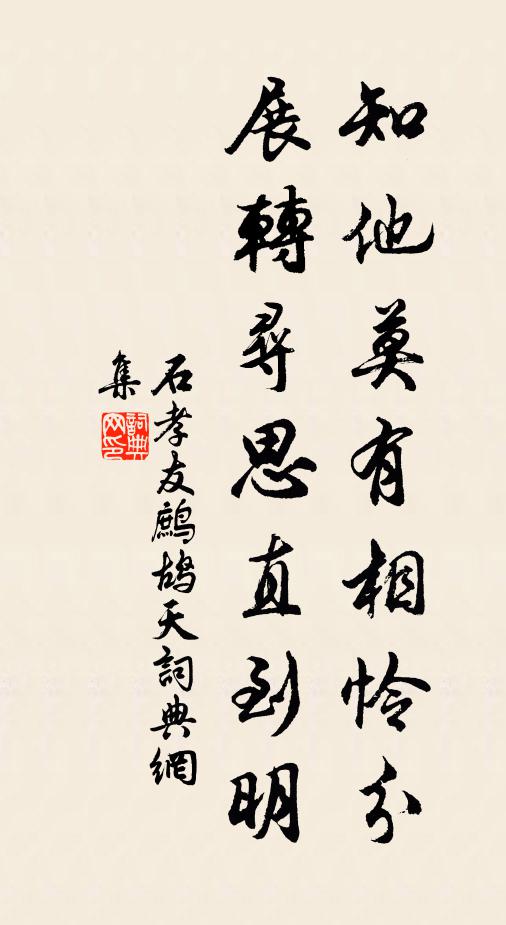 知他莫有相怜分
展轉尋思直到明
石孝友鷓鴣天詞典網
集
詞典網印